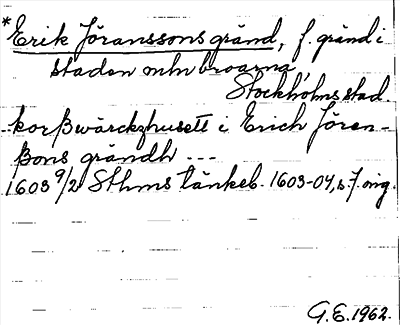 *Erik Jöranssons gränd, f. gränd i
staden mln broarna
Stockholms stad.
korßwärckzhusett i Erich Jören-
ßons grändh ---
1603 9/2 Sthms tänkeb. 1603-04, s. 7. orig.
G.E. 1962.